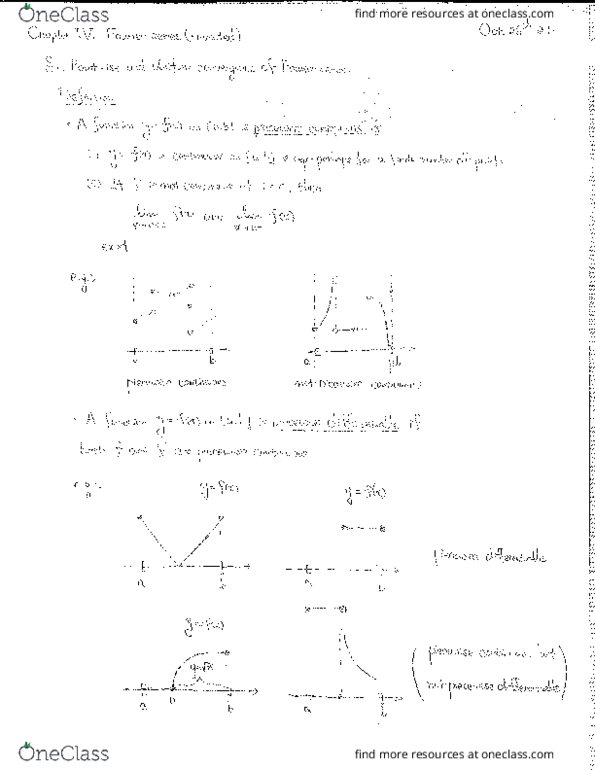 OneClass
find more resources at oneclass.com
Chapter IV. Fourier series (continued)
Oct 26th
Pointwise and uniform convergence of Fourier series
Definition
• A function y=f(x) on is piecewise continuous if
y=f(x) is continuous on except perhaps for a finite number of points
If is not continuous at , then
lim f(x) and lim f(x)
exist
e.g.
a b
a b
piecewise continuous
not piecewise continuous
• A function y=f(x) on is piecewise differentiable if
both f and f' are piecewise continuous
e.g.
y=f(x)
y=f'(x)
a b
a b
piecewise differentiable
y=f(x)
a 0 b
a b
(piecewise continuous but
not piecewise differentiable)
OneClass
find more resources at oneclass.com